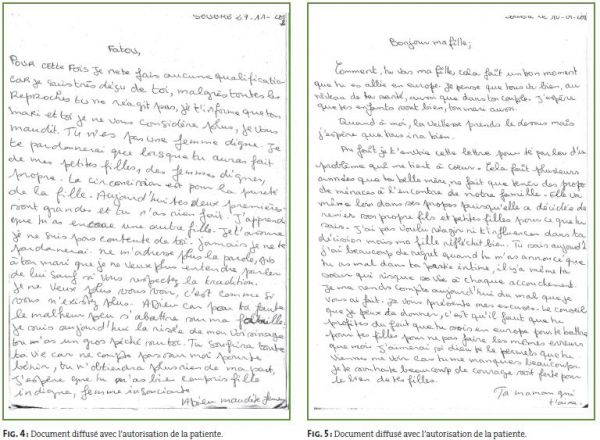 SOUBRE 27-11-201
Fatou,
POUR cette FOIS Je ne te fais aucune qualificatio
car je suis très déçue de toi, malgrès toutes les
Reproches tu ne réagit pas, je t'informe que ton
mari et toi je ne vous considère plus, je vous
maudit. Tu n'es pas une femme digne. Je
te pardonnerai que lorsque tu auras fait
de mes petites filles, des femmes dignes,
propre. La circoncision est pour la pureté
de la fille. Aujourd'hui tes deux premières
sont grandes et tu n'as rien fait. J'apprends
que tu as encore une autre fille. Je t'avoue
je ne suis pas contente de toi. Jamais je ne te
pardonnerai. ne m'adresse plus la parole, dis
à ton mari que je ne veux plus entendre parler
de lui sauf si vous respectez la tradition.
Je ne veux plus vous voir, c'est comme si
vous n'existez plus. A Dieu car pour ta faute
le malheur peu s'abattre sur ma famille.
Je suis aujourd'hui la risée de mon voisinage
tu m'as un gros péché sur toi. Tu soufrira toute
ta vie car ne compte pas sur moi pour te
bénir, tu n'obtiendra plus rien de ma part,
J'espère que tu m'as bien compris fille
indigne, femme insouciante
A Dieu maudite
FIG. 4 : Document diffusé avec l'autorisation de la patiente.
Bonjour ma fille,
Comment, tu vas ma fille cela fait un bon moment
que tu es allée en europe. Je pense que tous va bien, au
niveau de ta santé, aussi que dans ton couple. J'espère
que tes enfants vont bien, ton mari aussi.
Quand à moi, la vieillesse prends le dessus mais
j'espère que tous ira bien.
En fait je t'envoie cette lettre pour te parler d'un
problème qui me tient à cœur. Cela fait plusieurs
années que ta belle mère, ne fait que tenir des propos
de menaces à l'encontre de notre famille. Elle va
même loin dans ses propos puisqu'elle a décidée de
renier son propre fils et petites filles pour ce que tu
sais. J'ai pas voulu réagir ni t'influencer dans ta
décision mais ma fille réfléchit bien. Tu sais aujourd'h
j'ai beaucoup de regret quand tu m'as annoncé que
tu as mal dans ta partie intime, il y'a même ta
sœur qui risque sa vie à chaque accouchement.
Je me rends compte aujourd'hui du mal que je
vous ai fait. Je vous présente mes excuses. Le conseil
que je peux te donner, c'est qu'il faut que tu
profites du fait que tu sois en europe pour te battre
pour tes filles pour ne pas faire les mêmes erreurs
que moi. J'aimerai si dieu le permets que tu
vienne me voir car tu me manques beaucoup.
Je te souhaite beaucoup de courage soit forte pour
le bien de tes filles.
Ta maman qui
t'aime.
FIG. 5 : Document diffusé avec l'autorisation de la patiente.